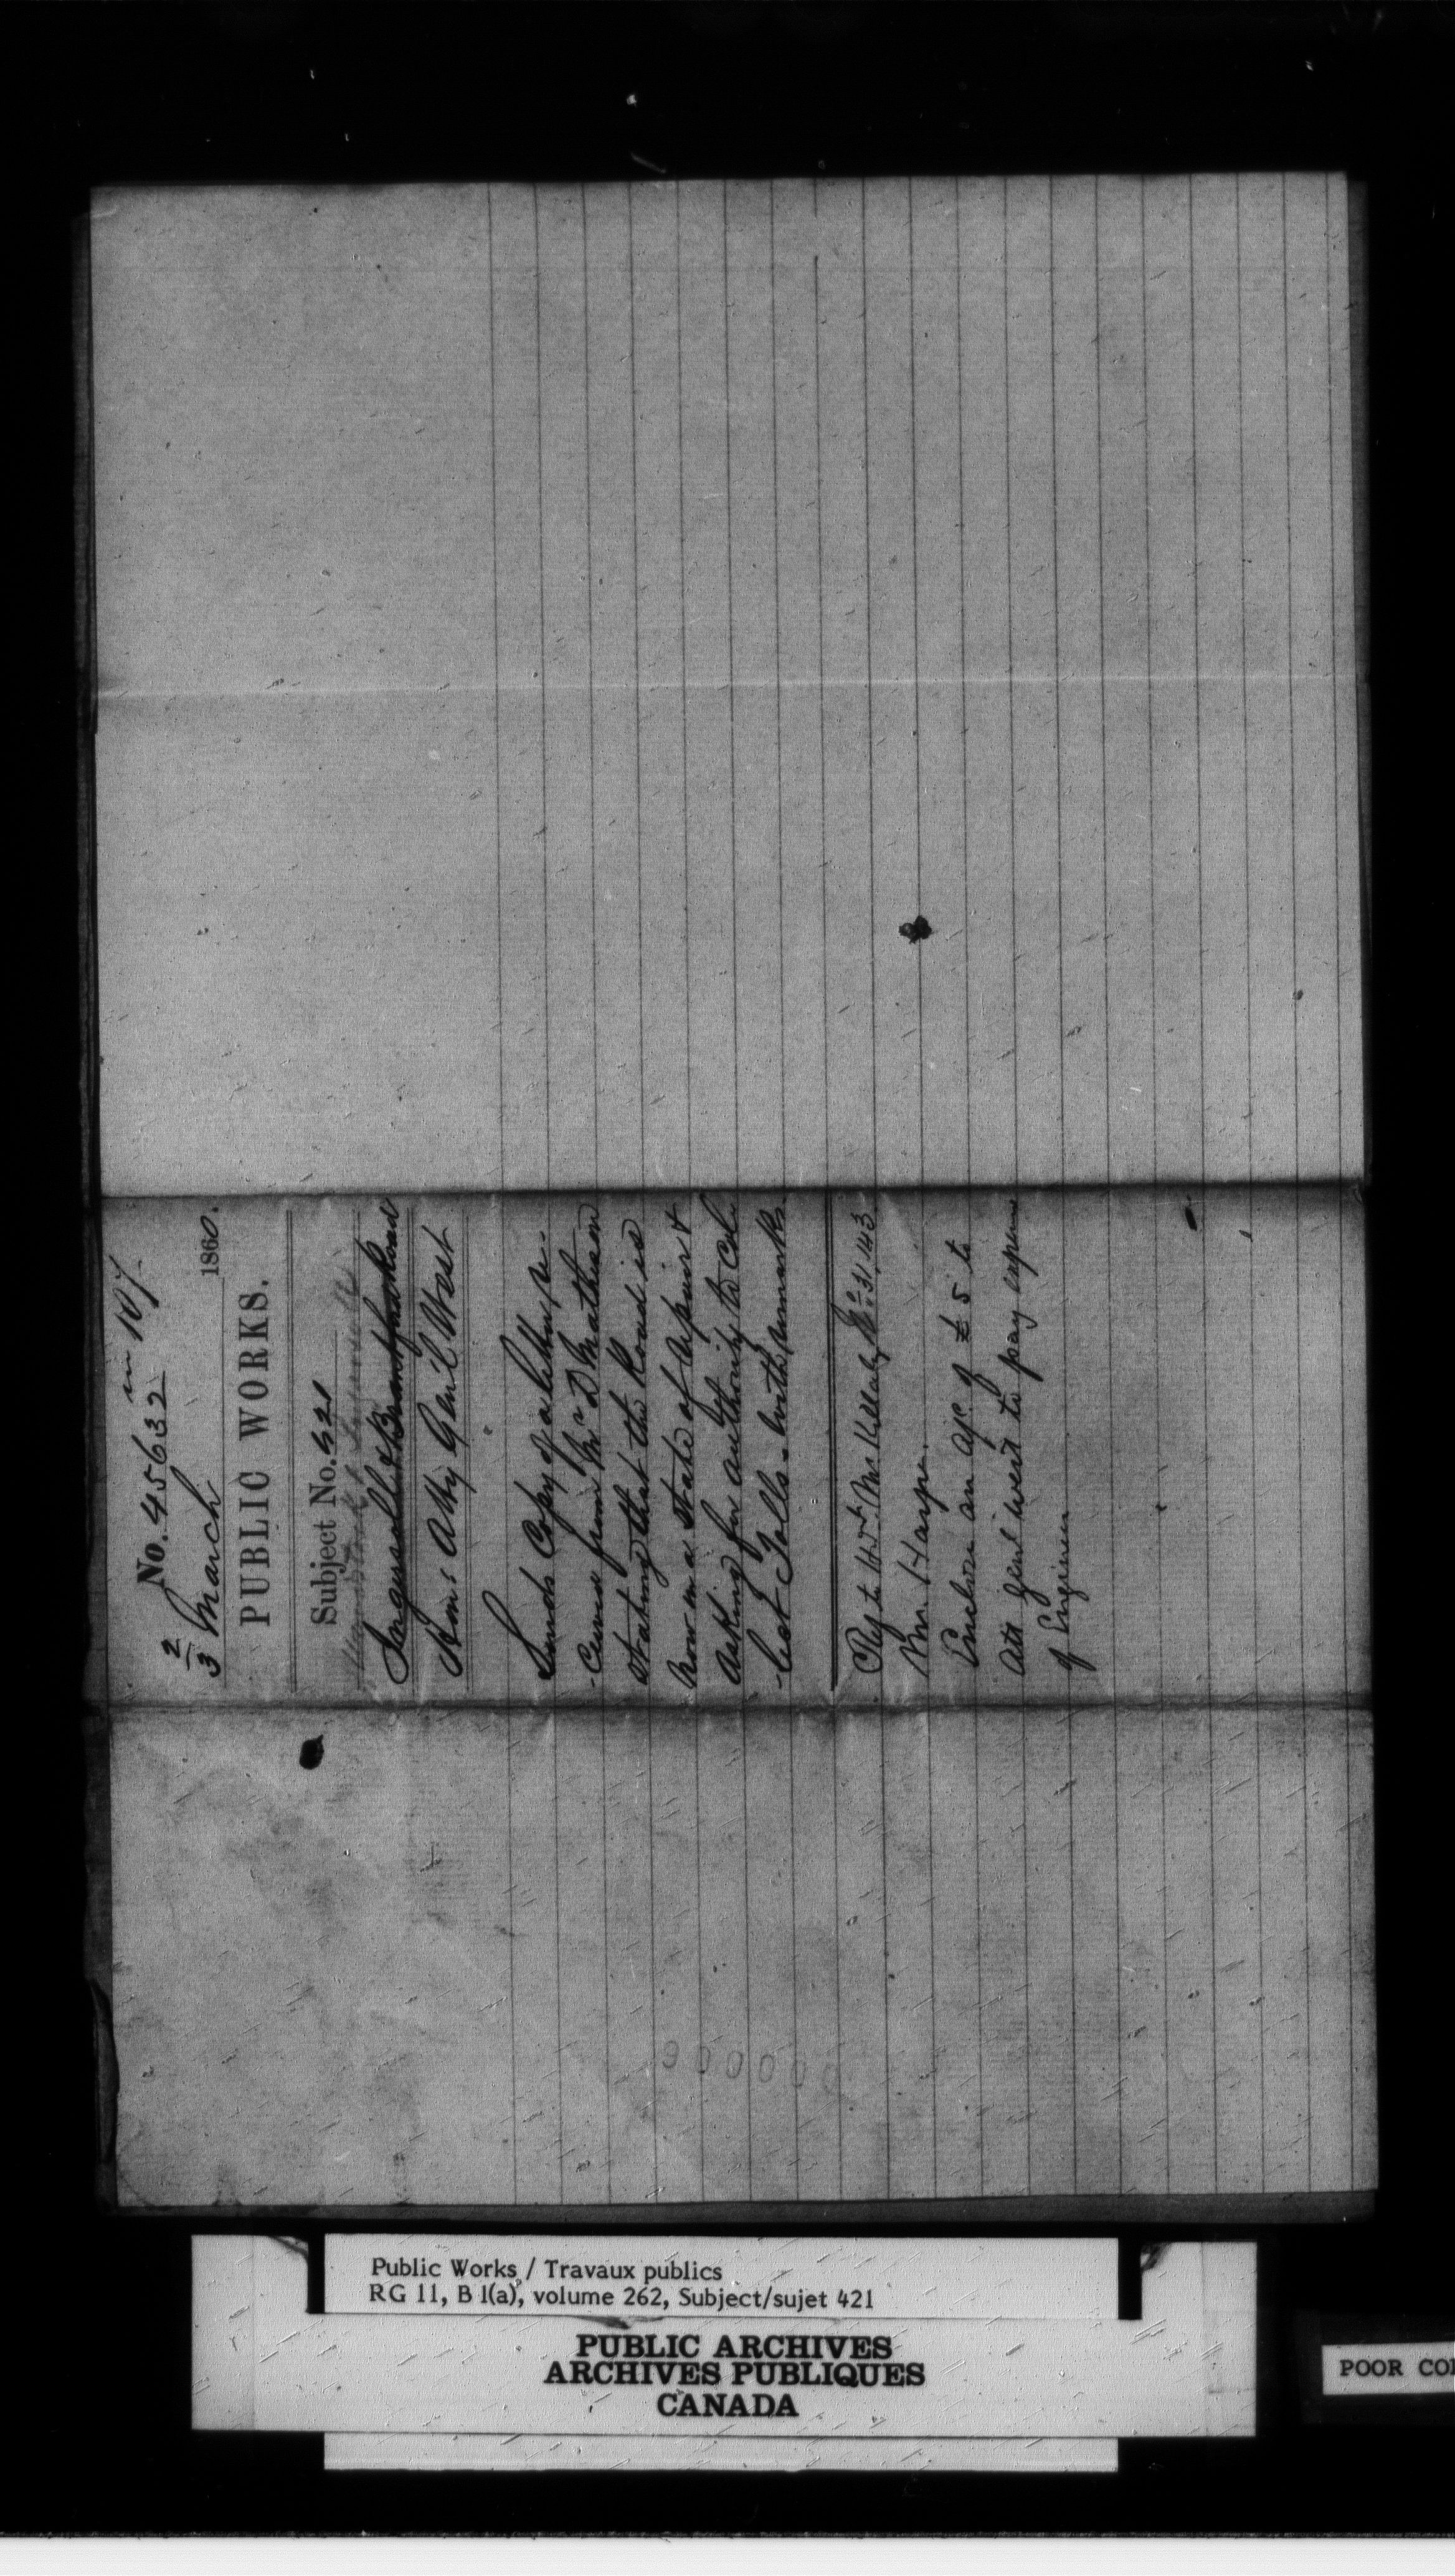 No. 45632 in 107.
2/3 March 1860.
PUBLIC WORKS.
Subject No. 421
Woodstock & Ingersoll
Ingersoll & Brantford Road
Hon: Atty Genl West
Sends Copy of a letter re-
-ceived from Mc D Matheson
stating that the Road is
now in a state of repair &
asking for authority to col-
-lect Tolls - with remarks
Reply to H. 5th No. 31,143
Mr. Hayne.
Enclose an a/c of £ 5 to
Att genl west to pay expense
of Engineer
900000
Public Works / Travaux publics
RG 11, B 1(a), volume 262, Subject/sujet 421
PUBLIC ARCHIVES
ARCHIVES PUBLIQUES
CANADA
POOR CO